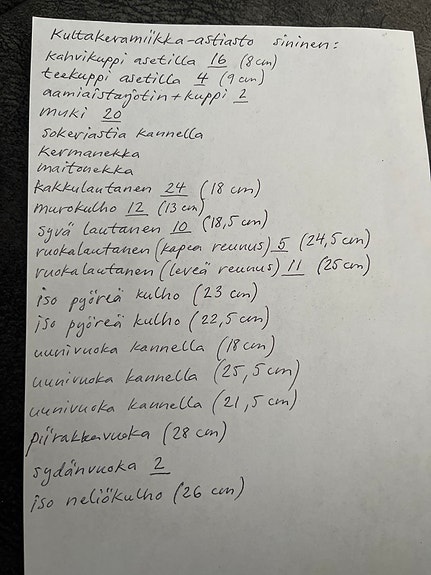 Kultakeramiikka-astiasto sininen:
kahvikuppi asetilla 16 (8cm)
teekuppi asetilla 4 (9cm)
aamiaistarjotin+kuppi 2
muki 20
sokeriastia kannella
kermanekka
maitonekka
kakkulautanen 24 (18 cm)
murokulho 12 (13 cm)
syvä lautanen 10 (18,5 cm)
ruokalautanen (kapea reunus) 5 (24,5 cm)
ruokalautanen (leveä reunus) 11 (25 cm)
iso pyöreä kulho (23 cm)
iso pyöreä kulho (22,5 cm)
uunivuoka kannella (18 cm)
uunivuoka kannella (25,5 cm)
uunivuoka kannella (21,5 cm)
piirakkavuoka (28 cm)
sydänvuoka 2
iso neliökulho (26 cm)